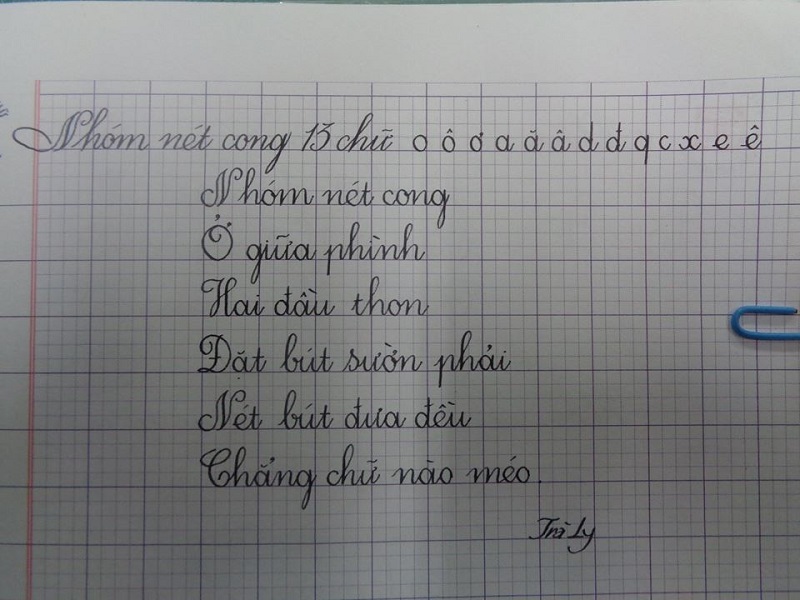 Nhóm nét cong 13 chữ o ô ơ a ă â d đ q c x e ê
Nhóm nét cong
Ở giữa phình
Hai đầu thon
Đặt bút sườn phải
Nét bút đưa đều
Chẳng chữ nào méo.